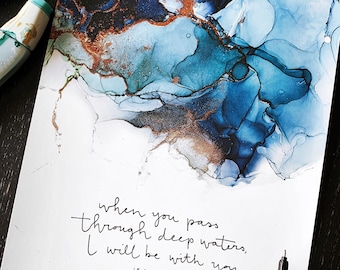 when you pass
through deep waters,
I will be with you